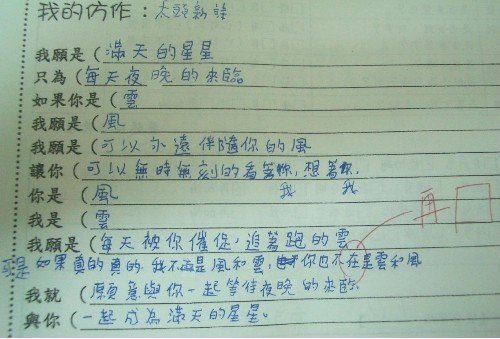 我的仿作：太頭新詩
我願是（滿天的星星
只為（每天夜晚的來臨
如果你是（雲
我願是（風
我願是（可以永遠伴隨你的風
讓你（可以無時無刻的看著你,想著你.
我 我
你是（風
我是（雲
再
我願是（每天被你催促,追著跑的雲
可是如果真的真的 我不再是風和雲, 你也不在是雲和風
我就（願意與你一起等待夜晚的來臨.
與你（一起成為滿天的星星。